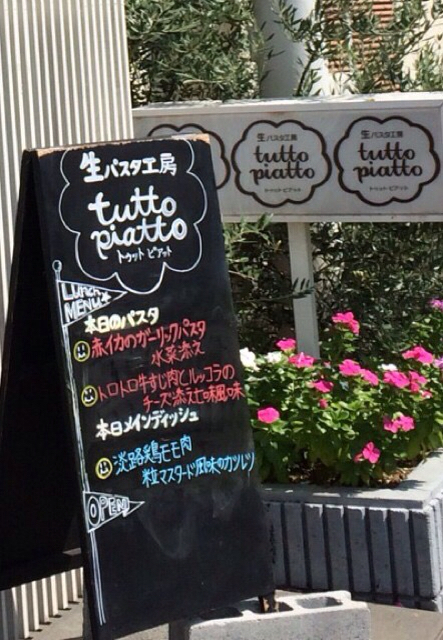 生パスタ工房
tutto
piatto
トゥット ピアット
Lunch
MENU
本日のパスタ
赤イカのガーリックパスタ
水菜添え
トロトロ牛すじ肉とルッコラの
チーズ添え
風味
本日メインディッシュ
淡路鶏モモ肉
粒マスタード風味のカツレツ
OPEN
生パスタ工房
tutto
piatto
トゥット ピアット
生パスタ工房
tutto
piatto
トゥット ピアット